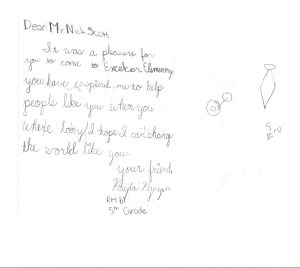 Dear Mr Nick Scott
It was a pleasure for
you to come to Excelsior Elementry
you have inspired me to help
people like you when you
where I hope I can chang
the world like you.
your friend,
Kayla Nguyen
RM 61
5th Grade